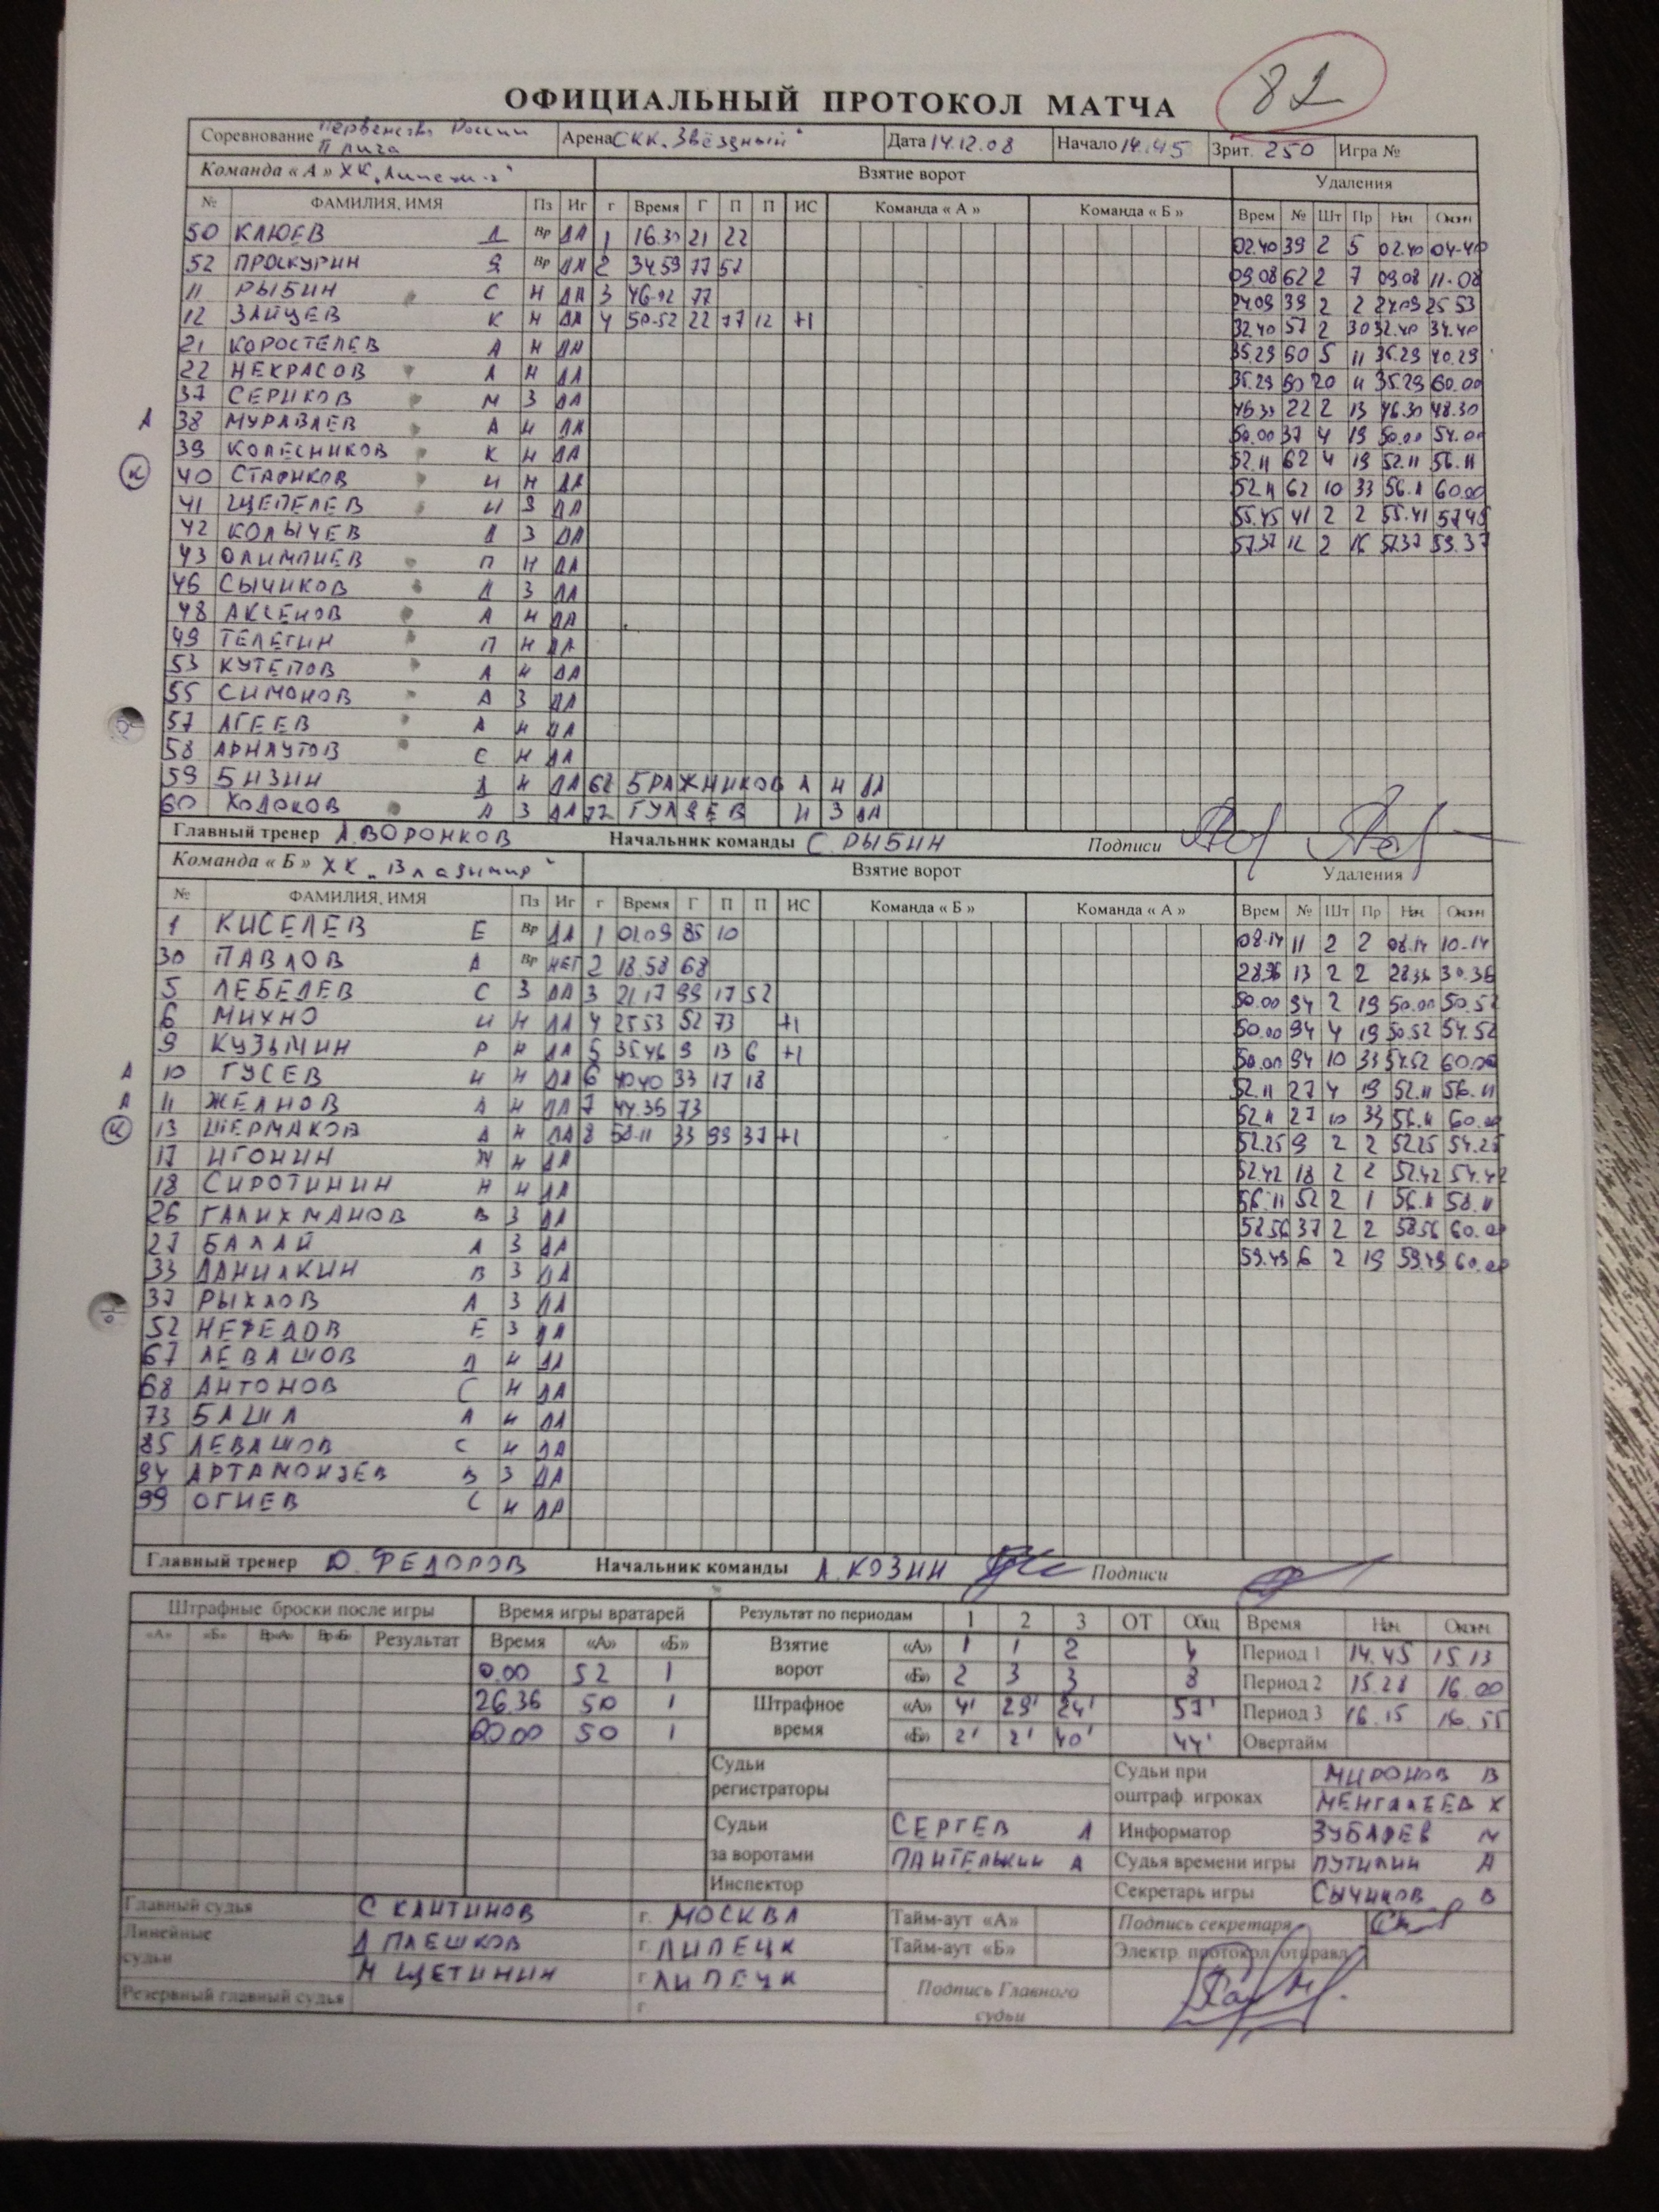 82
ОФИЦИАЛЬНЫЙ ПРОТОКОЛ МАТЧА
Соревнование Первенство России II лига Арена СКК "Звёздный" Дата 14.12.08 Начало 14.45 Зрит. 250 Игра №
Команда « А » ХК "Липецк" Взятие ворот Удаления
№ ФАМИЛИЯ, ИМЯ Пз Иг г Время Г П П ИС Команда « А » Команда « Б » Врем № Шт Пр Нач. Оконч
50 КЛЮЕВ Д Вр ДА 1 16.30 21 22 02.40 39 2 5 02.40 04-40
52 ПРОСКУРИН Я Вр ДА 2 34.59 77 57 09.08 62 2 7 09.08 11-08
11 РЫБИН С Н ДА 3 46-02 77 24.09 39 2 2 24.09 25 53
12 ЗАЙЦЕВ К Н ДА 4 50-52 22 77 12 +1 32.40 57 2 30 32.40 34.40
21 КОРОСТЕЛЕВ А Н ДА 35.29 60 5 11 35.29 40.29
22 НЕКРАСОВ А Н ДА 35.29 60 20 11 35.29 60.00
37 СЕРИКОВ М З ДА 46.30 22 2 13 46.30 48.30
А 38 МУРАВЛЕВ А Н ДА 50.00 37 4 19 50.00 54.00
39 КОЛЕСНИКОВ К Н ДА 52.11 62 4 19 52.11 56.11
К 40 СТАРИКОВ И Н ДА 52.11 62 10 33 56.11 60.00
41 ЩЕПЕЛЕВ И З ДА 55.45 41 2 2 55.41 57.45
42 КОЛЫЧЕВ Д З ДА 57.37 12 2 16 57.37 59.37
43 ОЛИМПИЕВ П Н ДА
46 СЫЧИКОВ Д З ДА
48 АКСЕНОВ А Н ДА
49 ТЕЛЕГИН П Н ДА
53 КУТЕПОВ А Н ДА
55 СИМОНОВ А З ДА
57 АГЕЕВ А Н ДА
58 АРНАУТОВ С Н ДА
59 БИЗИН Д Н ДА 62 БРАЖНИКОВ А Н ДА
60 ХОДАКОВ Д З ДА 77 ГУЛЯЕВ И З ДА
Главный тренер А. ВОРОНКОВ Начальник команды С. РЫБИН Подписи
Команда « Б » ХК "Владимир" Взятие ворот Удаления
№ ФАМИЛИЯ, ИМЯ Пз Иг г Время Г П П ИС Команда « Б » Команда « А » Врем № Шт Пр Нач. Оконч
1 КИСЕЛЕВ Е Вр ДА 1 01.09 85 10 08.14 11 2 2 08.14 10-14
30 ПАВЛОВ А Вр НЕТ 2 18.58 68 28.36 13 2 2 28.36 30.36
5 ЛЕБЕДЕВ С З ДА 3 21.17 99 17 52 50.00 94 2 19 50.00 50.52
6 МИХНО И Н ДА 4 25.53 52 73 +1 50.00 94 4 19 50.52 54.52
9 КУЗЬМИН Р Н ДА 5 35.46 9 13 6 +1 50.00 94 10 33 54.52 60.00
А 10 ГУСЕВ И Н ДА 6 40.40 33 17 18 52.11 27 4 19 52.11 56.11
А 11 ЖЕЛНОВ А Н ДА 7 44.36 73 52.11 27 10 33 56.11 60.00
К 13 ШЕРМАКОВ А Н ДА 8 58-11 33 99 37 +1 52.25 9 2 2 52.25 54.25
17 ИГОНИН М Н ДА 52.42 18 2 2 52.42 54.42
18 СИРОТИНИН Н Н ДА 56.11 52 2 1 56.11 58.11
26 ГАЛИХМАНОВ В З ДА 58.56 37 2 2 58.56 60.00
27 БАЛАЙ А З ДА 59.49 6 2 19 59.49 60.00
33 ДАНИЛКИН В З ДА
37 РЫХЛОВ А З ДА
52 НЕФЕДОВ Е З ДА
67 ЛЕВАШОВ Д Н ДА
68 АНТОНОВ С Н ДА
73 БАША А Н ДА
85 ЛЕВАШОВ С Н ДА
94 АРТАМОНЗЕВ В З ДА
99 ОГНЕВ С Н ДА
Главный тренер Ю. ФЕДОРОВ Начальник команды А. КОЗИН Подписи
Штрафные броски после игры Время игры вратарей Результат по периодам 1 2 3 ОТ Общ Время Нач. Оконч
«А» «Б» Вр«А» Вр«Б» Результат Время «А» «Б» Взятие ворот «А» 1 1 2 4 Период 1 14.45 15.13
0.00 52 1 «Б» 2 3 3 8 Период 2 15.28 16.00
26.36 50 1 Штрафное время «А» 4' 29' 24' 57' Период 3 16.15 16.55
60.00 50 1 «Б» 2' 2' 40' 44' Овертайм
Судьи регистраторы Судьи при оштраф. игроках МИРОНОВ В
МЕНГАЛЕЕВ Х
Судьи за воротами СЕРГЕВ А Информатор ЗУБАРЕВ М
ПАНТЕЛЬКИН А Судья времени игры ПУТИЛИН А
Инспектор Секретарь игры СЫЧИКОВ В
Главный судья С КАНТИНОВ г. МОСКВА Тайм-аут «А» Подпись секретаря
Линейные судьи Д ПЛЕШКОВ г. ЛИПЕЦК Тайм-аут «Б» Электр. протокол отправл.
М ЩЕТИНИН г ЛИПЕЦК Подпись Главного судьи
Резервный главный судья г